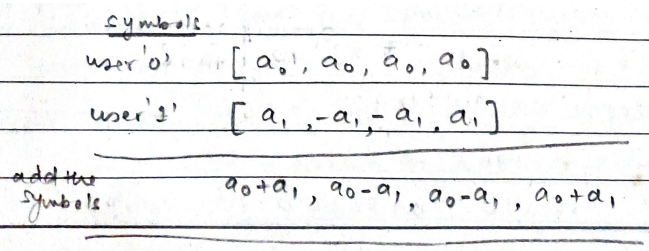 symbols
user'0' [ a₀, a₀, a₀, a₀ ]
user'1' [ a₁, -a₁, -a₁, a₁ ]
add the symbols a₀+a₁, a₀-a₁, a₀-a₁, a₀+a₁